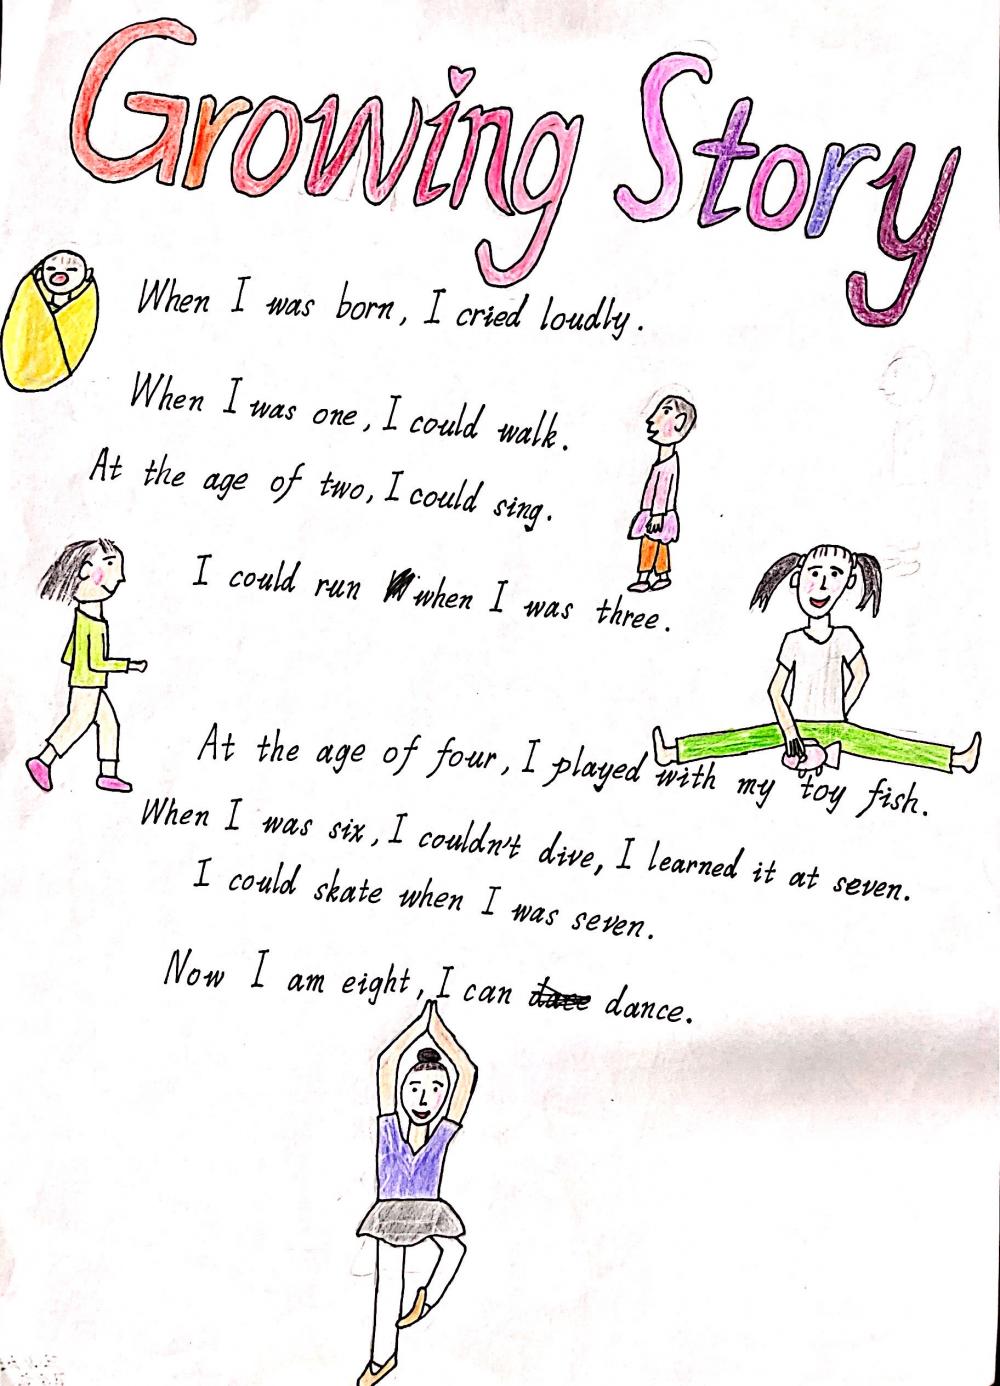 Growing Story
When I was born, I cried loudly.
When I was one, I could walk.
At the age of two, I could sing.
I could run when I was three.
At the age of four, I played with my toy fish.
When I was six, I couldn't dive, I learned it at seven.
I could skate when I was seven.
Now I am eight, I can dance.